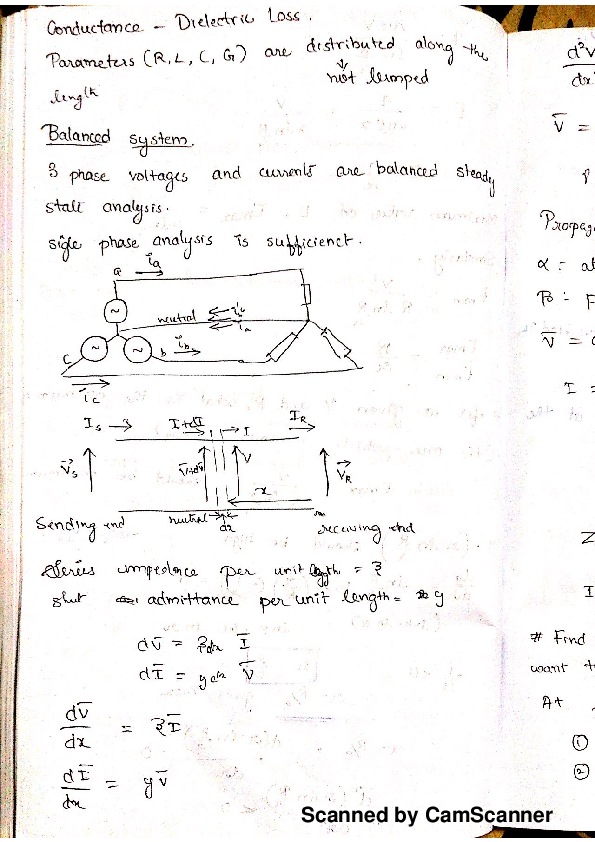 Conductance - Dielectric Loss.
Parameters (R, L, C, G) are distributed along the
not lumped
length
Balanced system.
3 phase voltages and currents are balanced steady
stat analysis.
sigle phase analysis is sufficienct.
a ia
neutral
ia
c b ib
ic
Is I+dI I IR
Vs V+dV V VR
x
neutral dx
Sending end receiving end
Series impedence per unit length = z
shut admittance per unit length = y
dV = zdx I
dI = ydx V
dV/dx = zI
dI/dx = yV
d²V
dx
V =
Propag
α =
V =
I =
Z
I
# Find
want t
At
①
②
Scanned by CamScanner